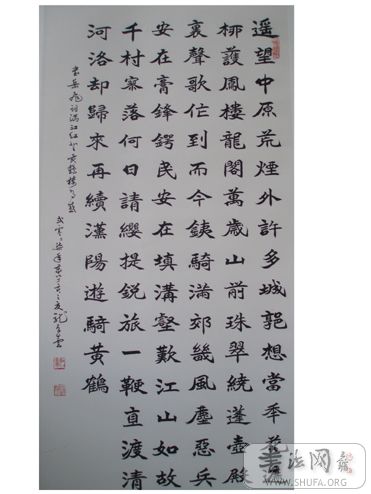 遥望中原荒煙外許多城郭想當年花遮
栁護鳳樓龍閣萬歲山前珠翠繞蓬壺殿
裏聲歌作到而今鐵騎滿郊畿風塵惡兵
安在膏鋒鍔民安在填溝壑歎江山如故
千村寥落何日請纓提銳旅一鞭直渡清
河洛却歸來再續漢陽遊騎黃鶴
宋岳飛詞滿江紅登黃鶴樓有感
書法网
WWW.SHUFA.ORG